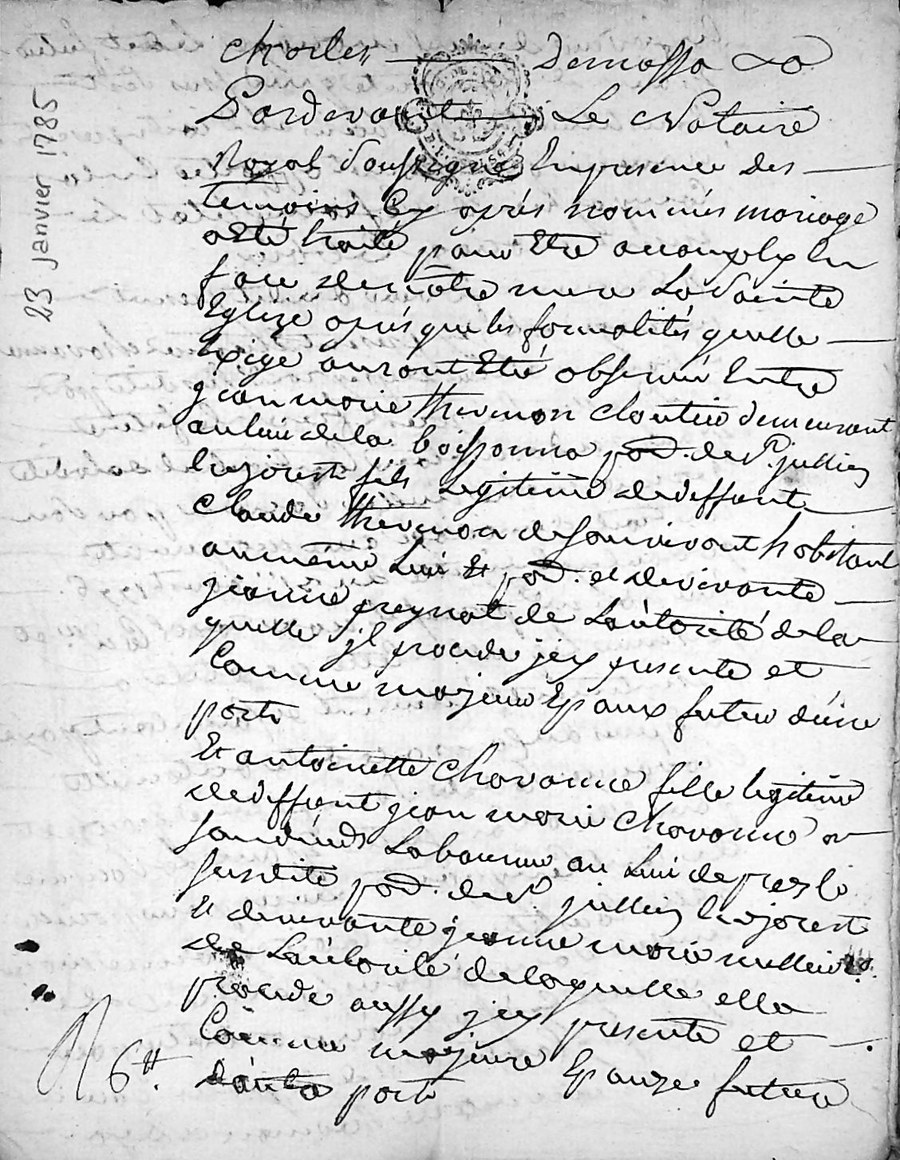 23 janvier 1785
charles Demassa
Pardevant Le Notaire
Royal soussigné En presence des
temoins Cy aprés nommés mariage
a eté traité pour Etre accomply En
face de nôtre mere La Sainte
Eglize aprés que les formalités quelle
Exige auront Eté observé Entre
jean marie thevenon cloutier demeurant
au lieu de la boissonna pard. de St. jullien
fils Legitime de deffunt
Claude thevenon de son vivant habitant
au meme Lieu & pard. et de vivante
jeanne preynat de Lautorité de la
quelle jl procede jcy presente et
Comme majeur Epoux futeur d'une
part
Et antoinette Chavanne fille legitime
de deffunt jean marie Chavanne
au Lieu de
susdite pard. de St. jullien
Et de vivante jeanne marie
de Lautorité de laquelle elle
procede aussy jcy presente et
Comme majeure Epouze future
d'autre part
6tt.